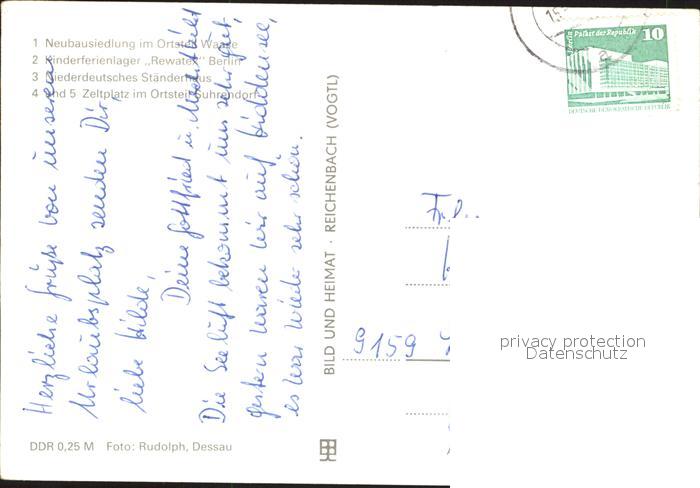 1 Neubausiedlung im Ortsteil Waase
2 Kinderferienlager „Rewatex" Berlin
3 Niederdeutsches Ständerhaus
4 und 5 Zeltplatz im Ortsteil Suhrendorf
Herzliche Grüße von unserem
Urlaubsplatz senden Dir,
liebe Hilde,
Deine Gottfried u.
Die Seeluft bekommt uns sehr gut,
gestern waren wir auf Hiddensee,
es war wieder sehr schön.
DDR 0,25 M Foto: Rudolph, Dessau
BILD UND HEIMAT · REICHENBACH (VOGTL)
Berlin, Palast der Republik 10
DEUTSCHE DEMOKRATISCHE REPUBLIK
Fr. D..
9159
privacy protection
Datenschutz